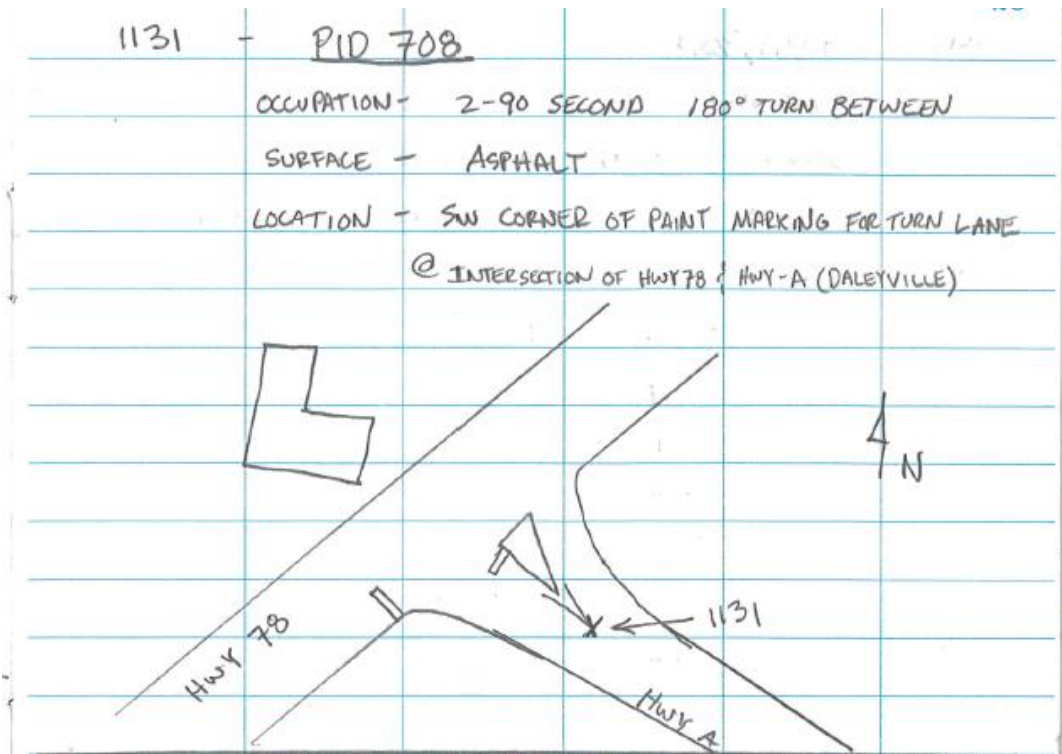 1131 - PID 708
OCCUPATION - 2-90 SECOND 180° TURN BETWEEN
SURFACE - ASPHALT
LOCATION - SW CORNER OF PAINT MARKING FOR TURN LANE
@ INTERSECTION OF HWY 78 & HWY-A (DALEYVILLE)
N
1131
HWY 78
HWY A